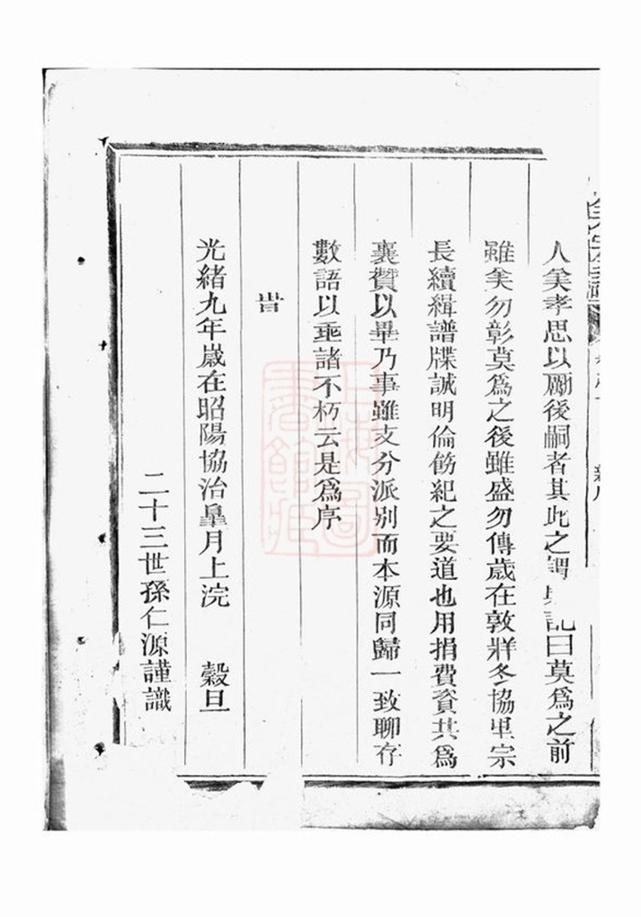 人美孝思以勵後嗣者其此之謂與記曰莫爲之前
雖美勿彰莫爲之後雖盛勿傳歲在敦牂冬協里宗
長續緝譜牒誠明倫飭紀之要道也用捐費資共爲
襄贊以畢乃事雖支分派别而本源同歸一致聊存
數語以垂諸不朽云是爲序
旹
光緒九年嵗在昭陽協治臯月上浣 穀旦
二十三世孫仁源謹識